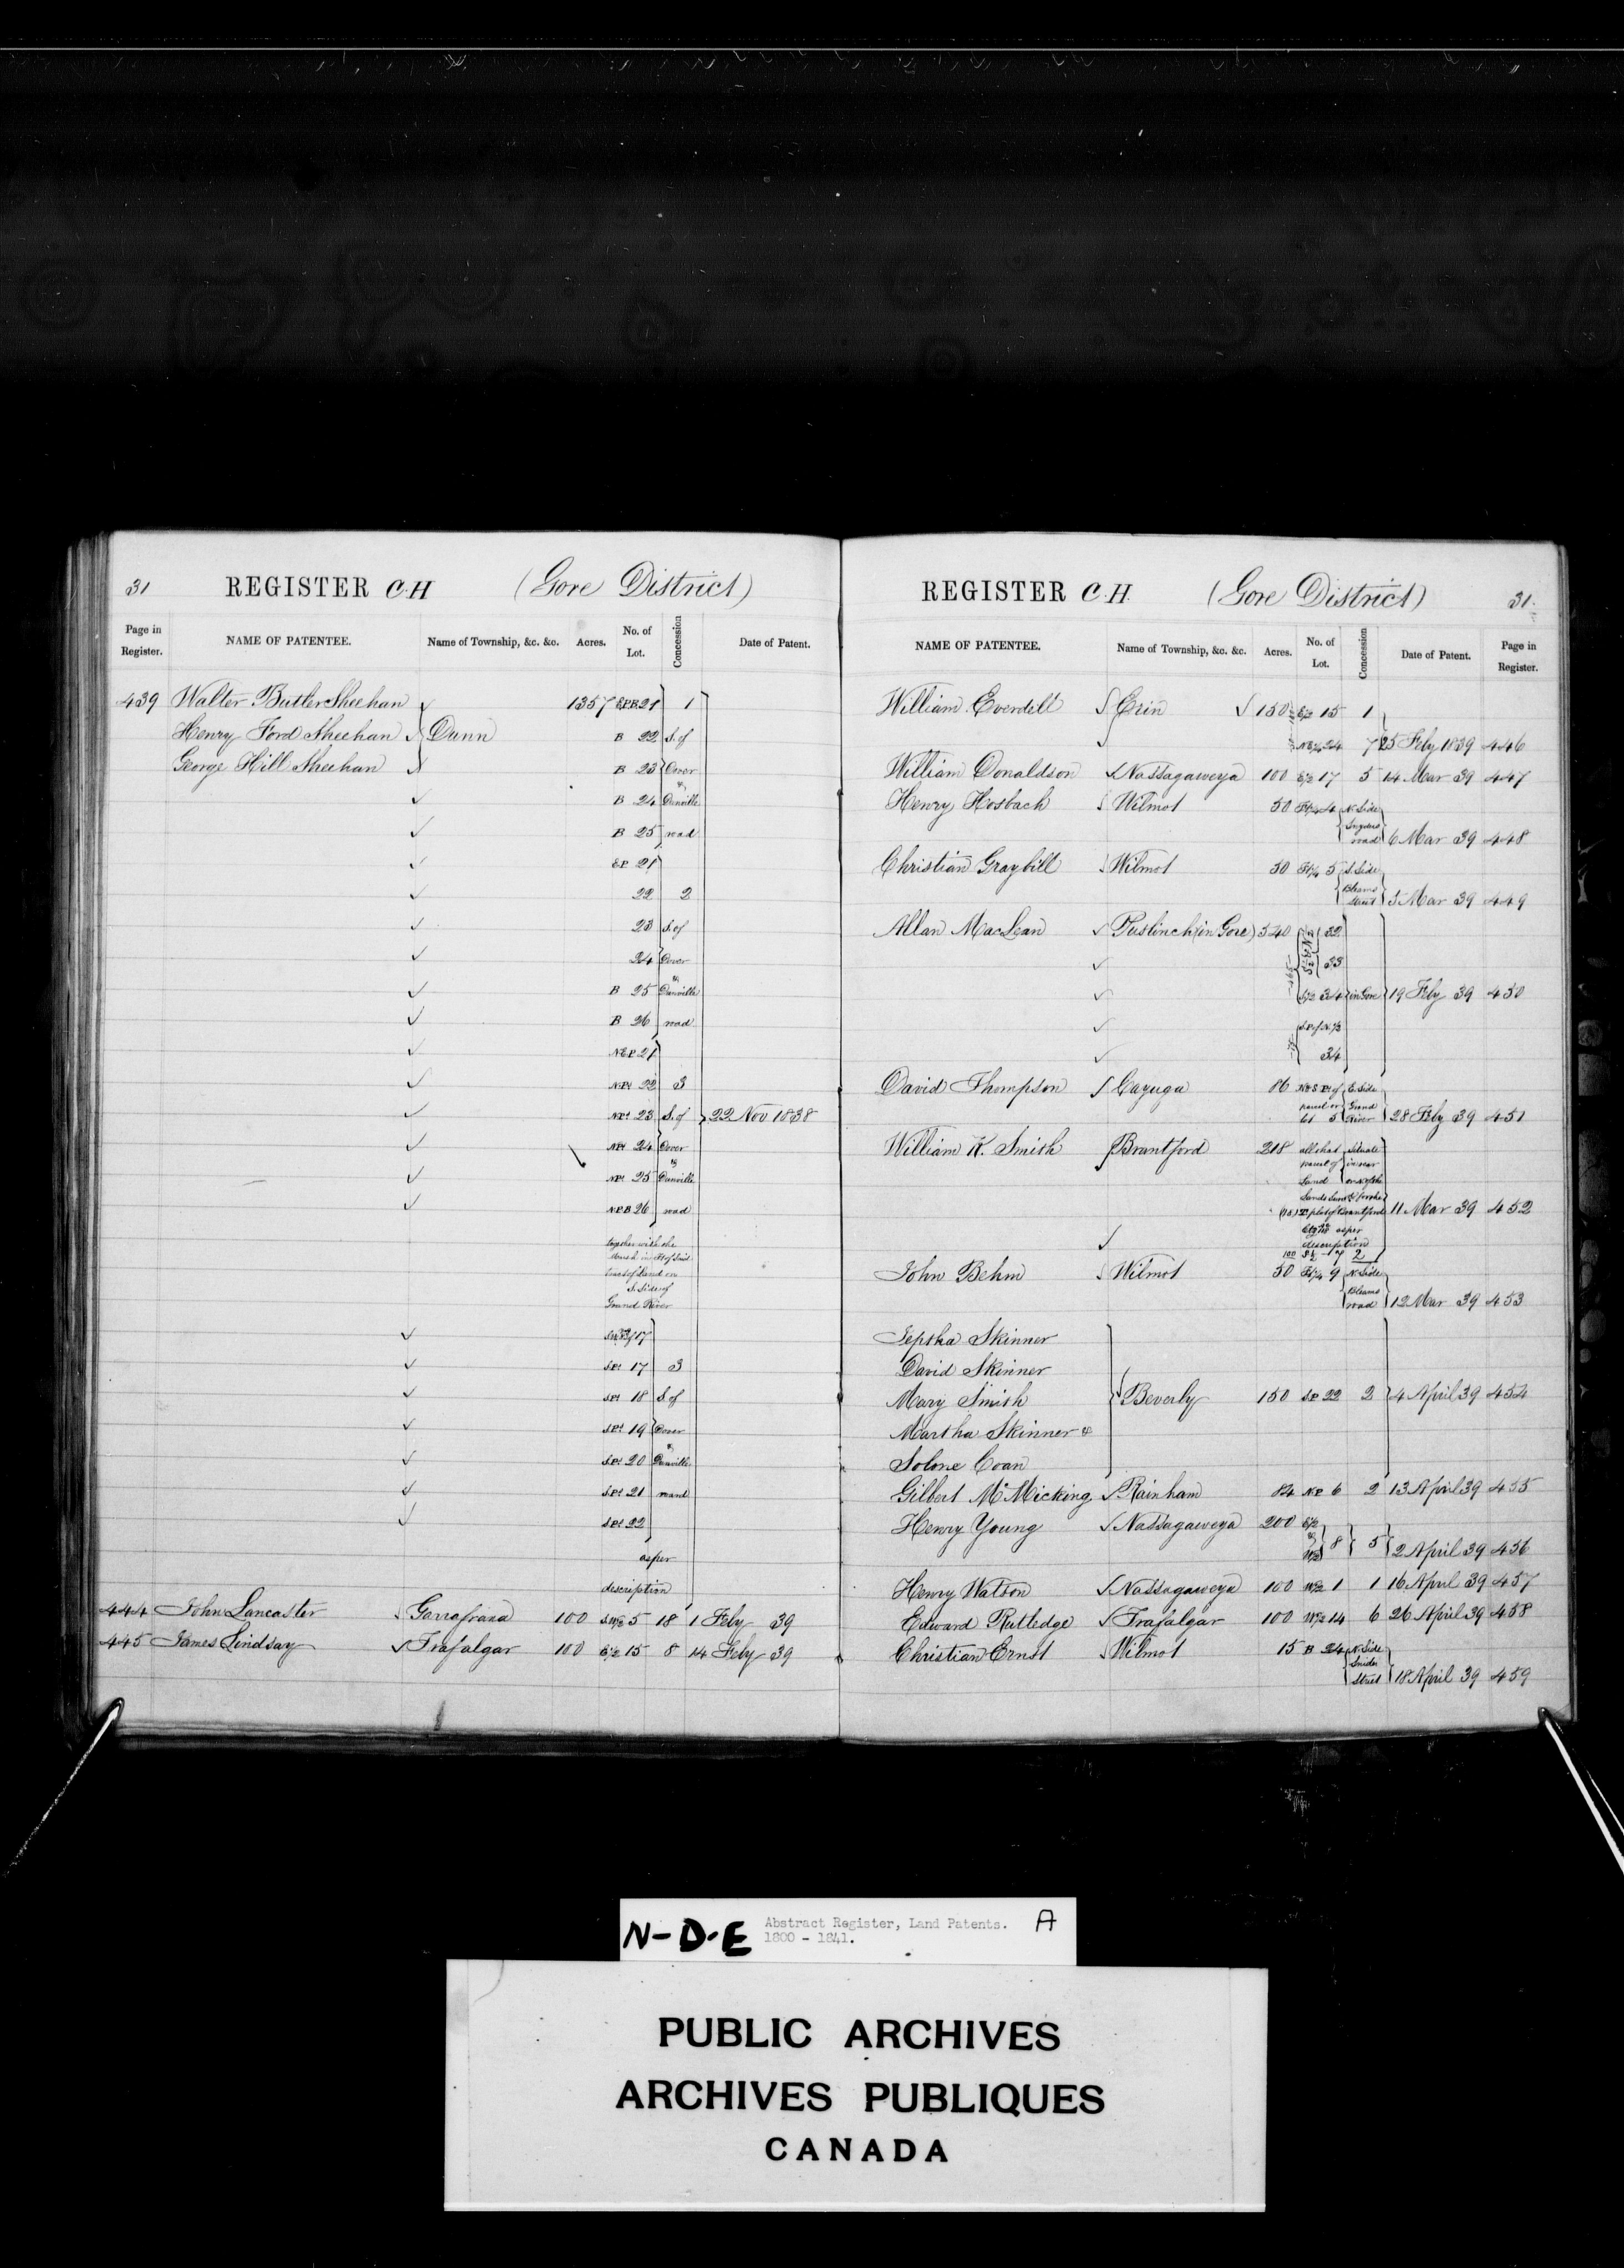 31 REGISTER C.H (Gore District)
Page in Register. NAME OF PATENTEE. Name of Township, &c. &c. Acres. No. of Lot. Concession Date of Patent.
439 Walter Butler Sheehan 1357 E.P.B. 21 1
Henry Ford Sheehan Dunn B 22 S. of
George Hill Sheehan B 23 Dover
B 24 & Dunville
B 25 road
E.P. 21
22 2
23 S. of
24 Dover
B 25 & Dunville
B 26 road
N.E.P. 21
N.Pt 22 3
N.Pt 23 S. of 22 Nov 1838
N.Pt 24 Dover
N.Pt 25 & Dunville
N.P.B 26 road
together with the
Marsh in
S. Side of
Grand River
17
S.Pt 17 3
S.Pt 18 S. of
S.Pt 19 Dover
S.Pt 20 & Dunville
S.Pt 21 road
S.Pt 22
as per
description
444 John Lancaster Garrafraxa 100 S.W½ 5 18 1 Feby 39
445 James Lindsay Trafalgar 100 E½ 15 8 14 Feby 39
REGISTER C.H. (Gore District) 31.
NAME OF PATENTEE. Name of Township, &c. &c. Acres. No. of Lot. Concession Date of Patent. Page in Register.
William Everdell Erin 150 E½ 15 1
24 7 25 Feby 1839 446
William Donaldson Nassagaweya 100 E½ 17 5 14 Mar 39 447
Henry Hosbach Wilmot 50 4 N. Side
road 6 Mar 39 448
Christian Graybill Wilmot 50 5 S. Side
Bleams Street 5 Mar 39 449
Allan MacLean Puslinch (in Gore) 540 32
33
S½ 34 in Gore 19 Feby 39 450
S.P. of N.½
34
David Thompson Cayuga 86 E. Side
parcel or Grand
lot 5 River 28 Feby 39 451
William K. Smith Brantford 218 all that Situate
parcel of in rear
Land
plot of Brantford 11 Mar 39 452
as per
description
100 2
John Behm Wilmot 50 9 N. Side
Bleams
road 12 Mar 39 453
Jeptha Skinner
David Skinner
Mary Smith Beverly 150 S.P. 22 2 4 April 39 454
Martha Skinner &
Solone Coan
Gilbert McMicking Rainham 84 N.P. 6 2 13 April 39 455
Henry Young Nassagaweya 200 E½
& W½ 8 5 2 April 39 456
Henry Watson Nassagaweya 100 W½ 1 1 16 April 39 457
Edward Rutledge Trafalgar 100 W½ 14 6 26 April 39 458
Christian Ernst Wilmot 15 B 24 N. Side
Snider
Street 18 April 39 459
N-D-E Abstract Register, Land Patents. A
1800 - 1841.
PUBLIC ARCHIVES
ARCHIVES PUBLIQUES
CANADA